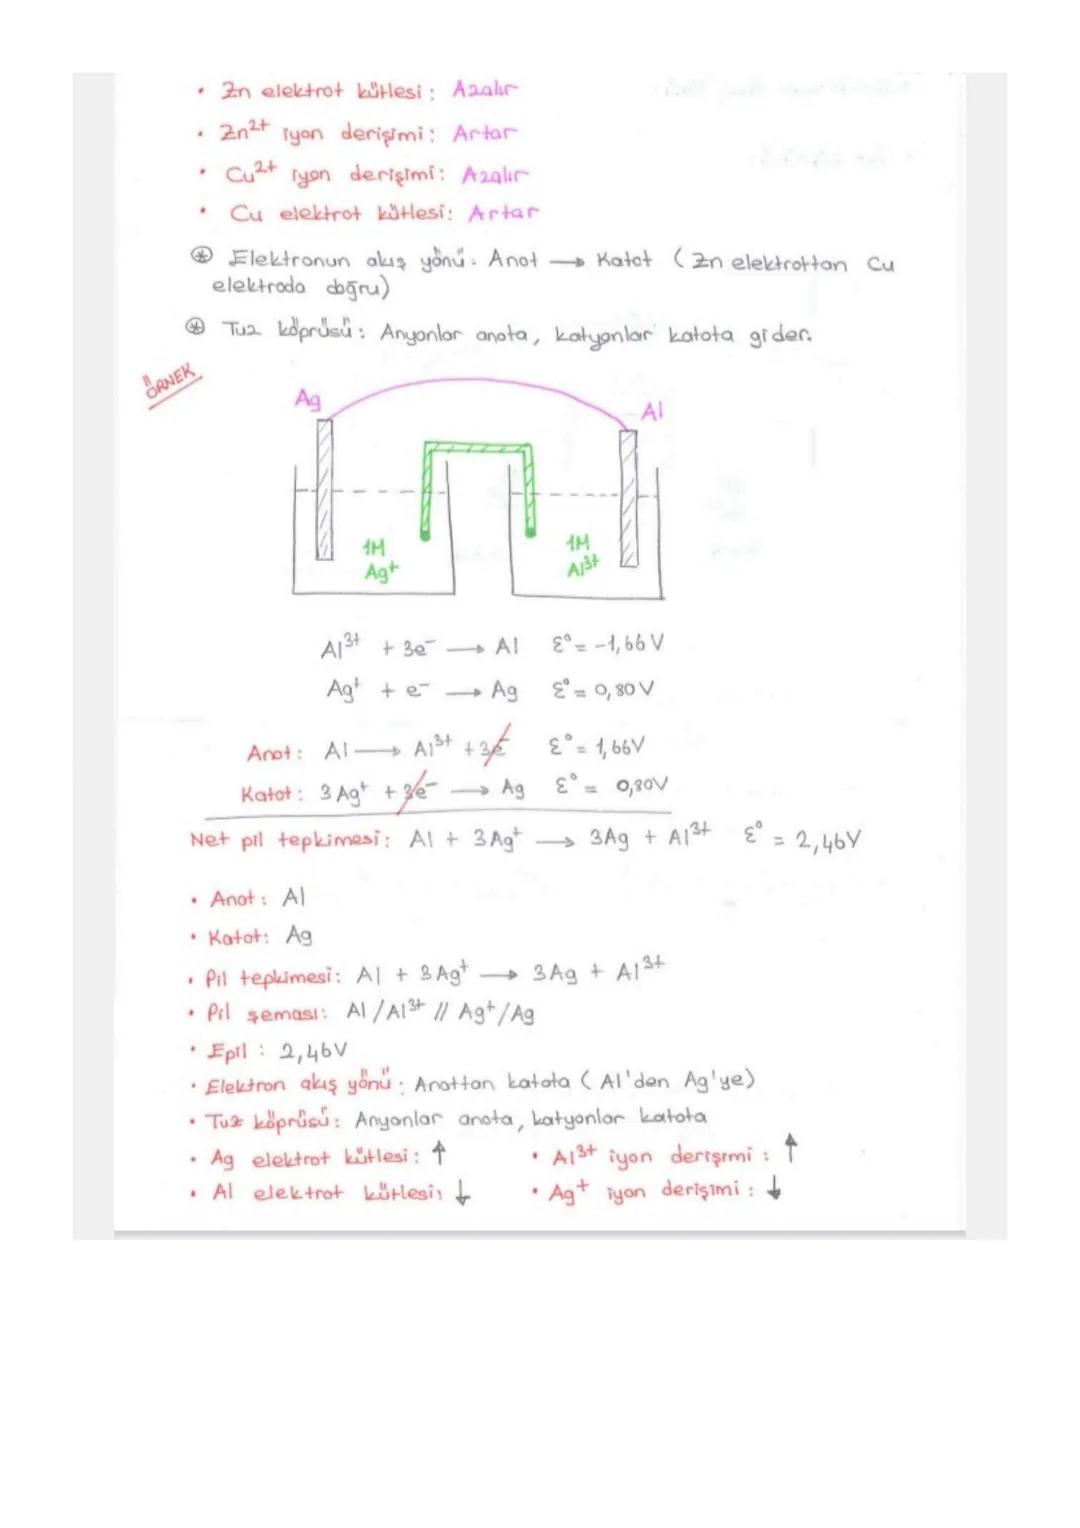 • Zn elektrot kütlesi: Azalır
• Zn²⁺ iyon derişimi: Artar
• Cu²⁺ iyon derişimi: Azalır
• Cu elektrot kütlesi: Artar
⊛ Elektronun akış yönü: Anot → Katot (Zn elektrottan Cu
elektroda doğru)
⊛ Tuz köprüsü: Anyonlar anota, katyonlar katota gider.
ÖRNEK
Ag
Al
1M
Ag⁺
1M
Al³⁺
Al³⁺ + 3e⁻ → Al ε° = -1,66 V
Ag⁺ + e⁻ → Ag ε° = 0,80 V
Anot: Al → Al³⁺ + 3e⁻ ε° = 1,66V
Katot: 3 Ag⁺ + 3e⁻ → Ag ε° = 0,80V
Net pil tepkimesi: Al + 3 Ag⁺ → 3Ag + Al³⁺ ε° = 2,46V
• Anot: Al
• Katot: Ag
• Pil tepkimesi: Al + 3 Ag⁺ → 3 Ag + Al³⁺
• Pil şeması: Al / Al³⁺ // Ag⁺ / Ag
• Epil : 2,46V
• Elektron akış yönü: Anottan katota (Al'den Ag'ye)
• Tuz köprüsü: Anyonlar anota, katyonlar katota
• Ag elektrot kütlesi: ↑ • Al³⁺ iyon derişimi : ↑
• Al elektrot kütlesi: ↓ • Ag⁺ iyon derişimi : ↓